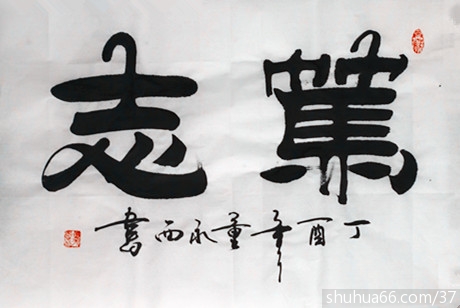 業志
丁酉年董永西書
shuhua66.com/37